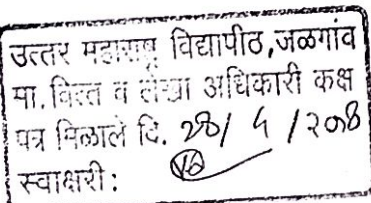 उत्तर महाराष्ट्र विद्यापीठ,जळगांव
मा. वित्त व लेखा अधिकारी कक्ष
पत्र मिळाले दि.
स्वाक्षरी :